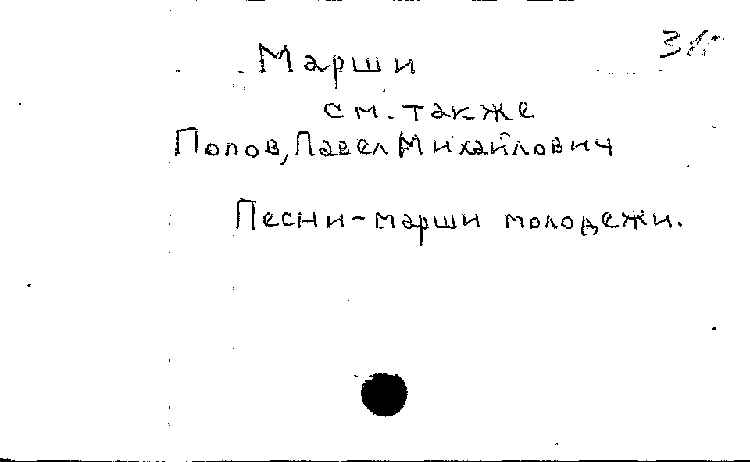 Марши
см. также
Попов, Павел Михайлович
Песни-марши молодежи.